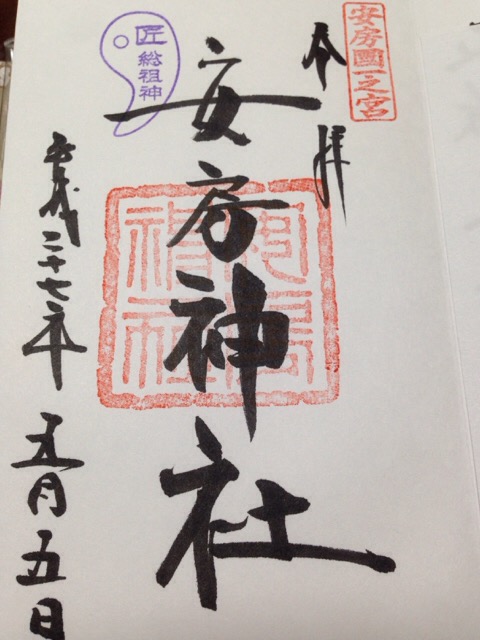 安房國一之宮
奉拝
匠総祖神
安房神社
平成二十七年五月五日